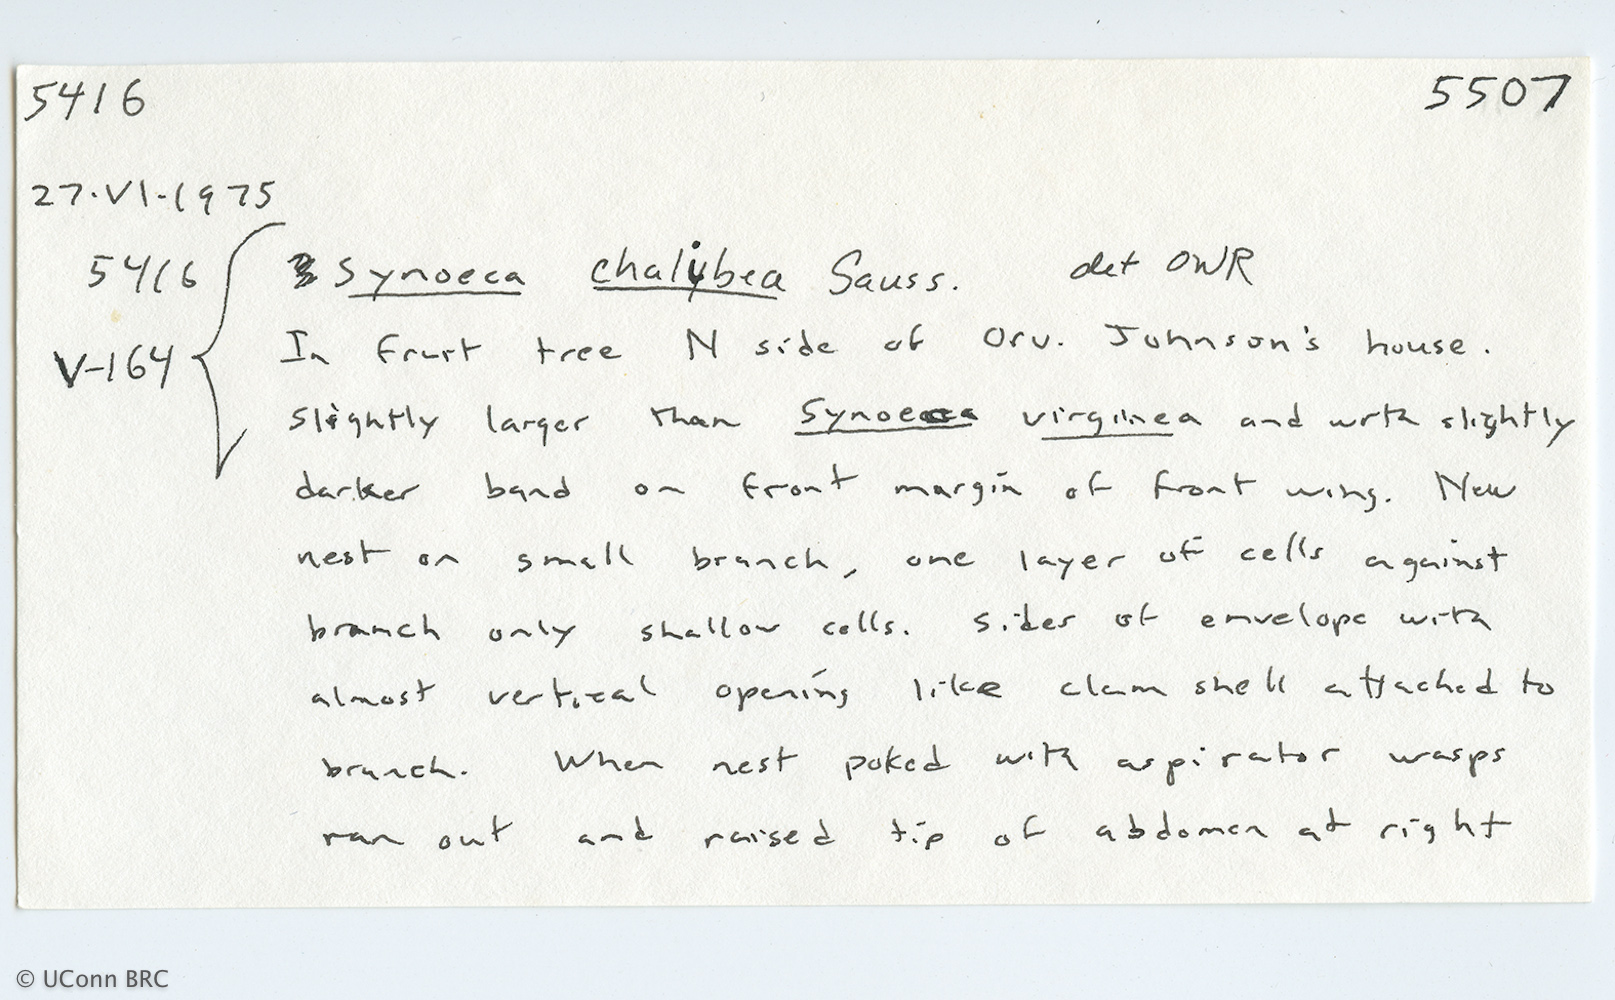 5416 5507
27·VI-1975
5416 Synoeca chalybea Sauss. det OWR
V-164 In fruit tree N side of Orv. Johnson's house.
slightly larger than Synoeca virginea and with slightly
darker band on front margin of front wing. New
nest on small branch, one layer of cells against
branch only shallow cells. Sides of envelope with
almost vertical opening like clam shell attached to
branch. When nest poked with aspirator wasps
ran out and raised tip of abdomen at right
© UConn BRC